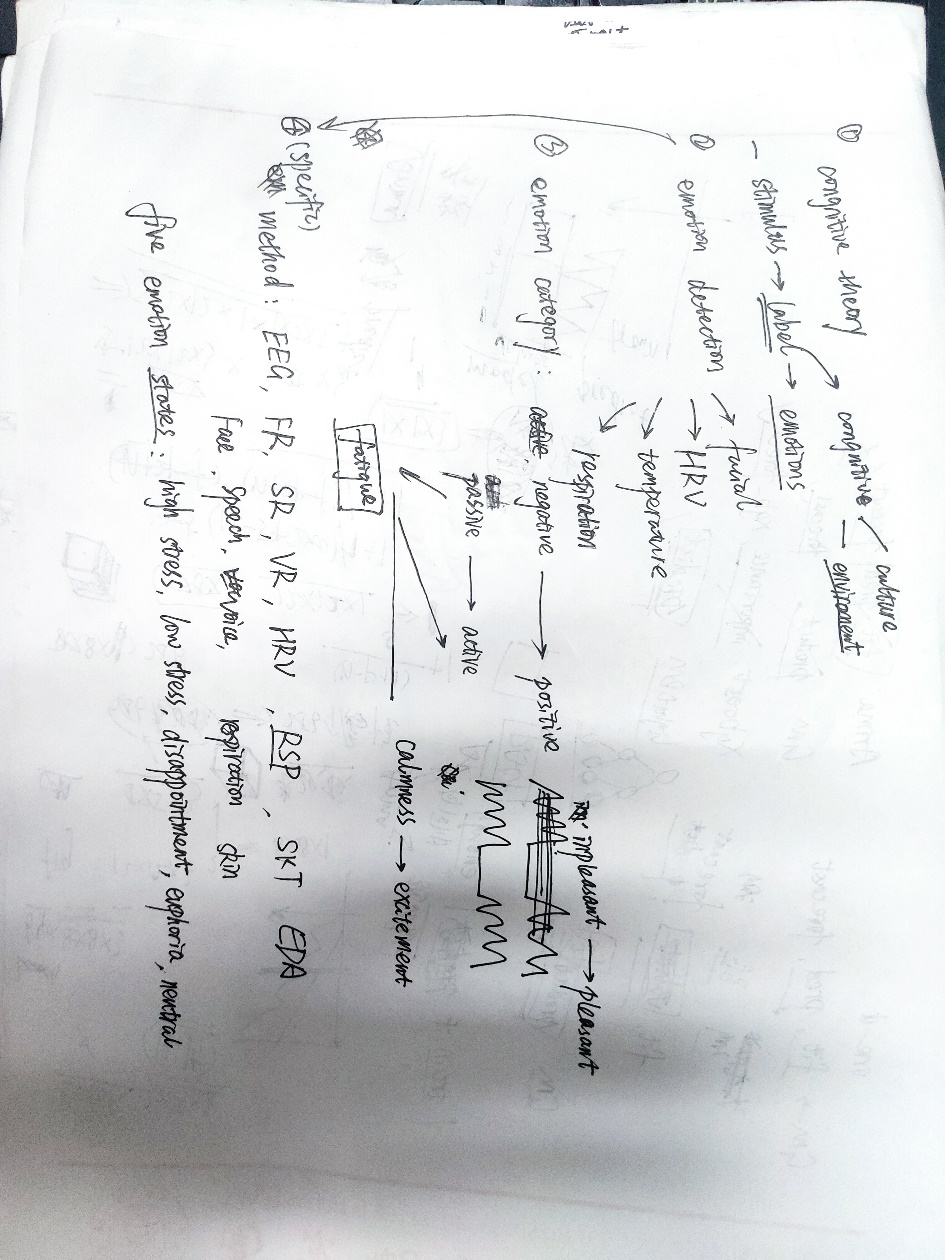 ① congnitive theory → congnitive / culture
— enviroment
— stimulus → label → emotions
② emotion detection → facial
→ HRV
→ temperature
→ respiration
③ emotion category: negative → positive
impleasant → pleasant
passive → active
calmness → excitement
fatigue
④ (specific)
method: EEG, FR, SR, VR, HRV, RSP, SKT, EDA
Face, speach, voice, respiration skin
five emotion states: high stress, low stress, disappointment, euphoria, neutral